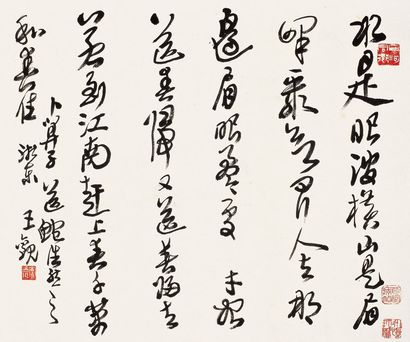 水是眼波橫山是眉
峰聚欲問行人去那
邊眉眼盈盈處 才始
送春歸又送君歸去
若到江南趕上春千萬
和春住
卜算子 送鮑浩然之
浙東 王觀